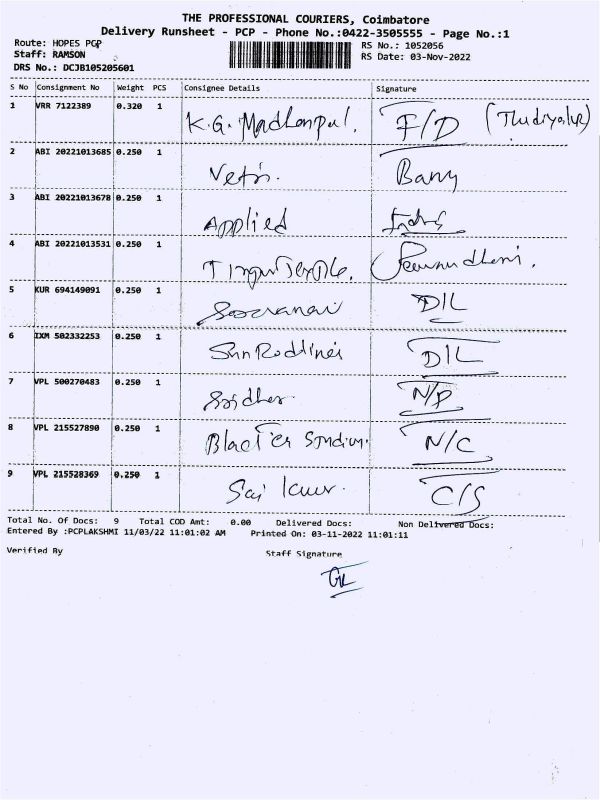 THE PROFESSIONAL COURIERS, Coimbatore
Delivery Runsheet - PCP - Phone No.:0422-3505555 - Page No.:1
Route: HOPES PCP
RS No.: 1052056
Staff: RAMSON
RS Date: 03-Nov-2022
DRS No.: DCJB105205601
S No Consignment No Weight PCS Consignee Details Signature
1 VRR 7122389 0.320 1 K.G. F/D
2 ABI 20221013685 0.250 1
3 ABI 20221013678 0.250 1 Applied
4 ABI 20221013531 0.250 1
5 KUR 694149091 0.250 1 D/L
6 IXM 502332253 0.250 1 D/L
7 VPL 500270483 0.250 1 N/P
8 VPL 215527890 0.250 1 N/C
9 VPL 215528369 0.250 1 Sai C/S
Total No. Of Docs: 9 Total COD Amt: 0.00 Delivered Docs: Non Delivered Docs:
Entered By :PCPLAKSHMI 11/03/22 11:01:02 AM Printed On: 03-11-2022 11:01:11
Verified By Staff Signature